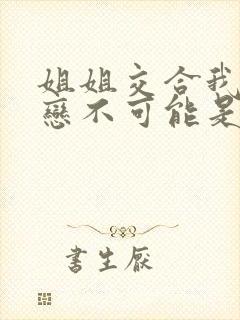 姐姐交合我
戀不可能是
書生厭